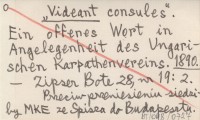 „Videant consules".
Ein offenes Wort in
Angelegenheit des Ungari-
schen Karpathenvereins. 1890.
— Zipser Bote 28, nr 19: 2.
Przeciw przeniesieniu siedzi-
by MKE ze Spisza do Budapesztu.